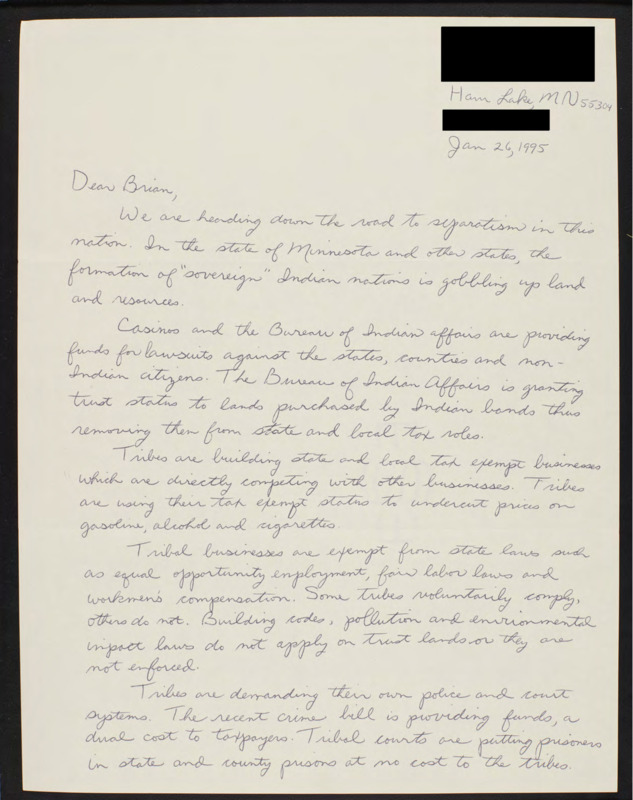 Ham Lake, MN 55304
Jan 26, 1995
Dear Brian,
We are heading down the road to separatism in this
nation. In the state of Minnesota and other states, the
formation of "sovereign" Indian nations is gobbling up land
and resources.
Casinos and the Bureau of Indian affairs are providing
funds for lawsuits against the states, counties and non-
Indian citizens. The Bureau of Indian Affairs is granting
trust status to lands purchased by Indian bands thus
removing them from state and local tax roles.
Tribes are building state and local tax exempt businesses
which are directly competing with other businesses. Tribes
are using their tax exempt status to undercut prices on
gasoline, alcohol and cigarettes.
Tribal businesses are exempt from state laws such
as equal opportunity employment, fair labor laws and
workmen's compensation. Some tribes voluntarily comply,
others do not. Building codes, pollution and environmental
impact laws do not apply on trust lands or they are
not enforced.
Tribes are demanding their own police and court
systems. The recent crime bill is providing funds, a
dual cost to taxpayers. Tribal courts are putting prisoners
in state and county prisons at no cost to the tribes.